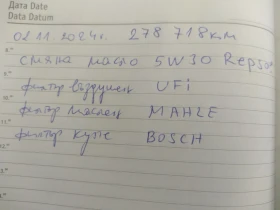 Дата Date
Data Datum
02.11.2024г. 278 718км
8.°°
смяна масло 5W30 Repsol
9.°°
филтър въздушен UFi
10.°°
филтър маслен MAHLE
11.°°
филтър купе BOSCH
12.°°